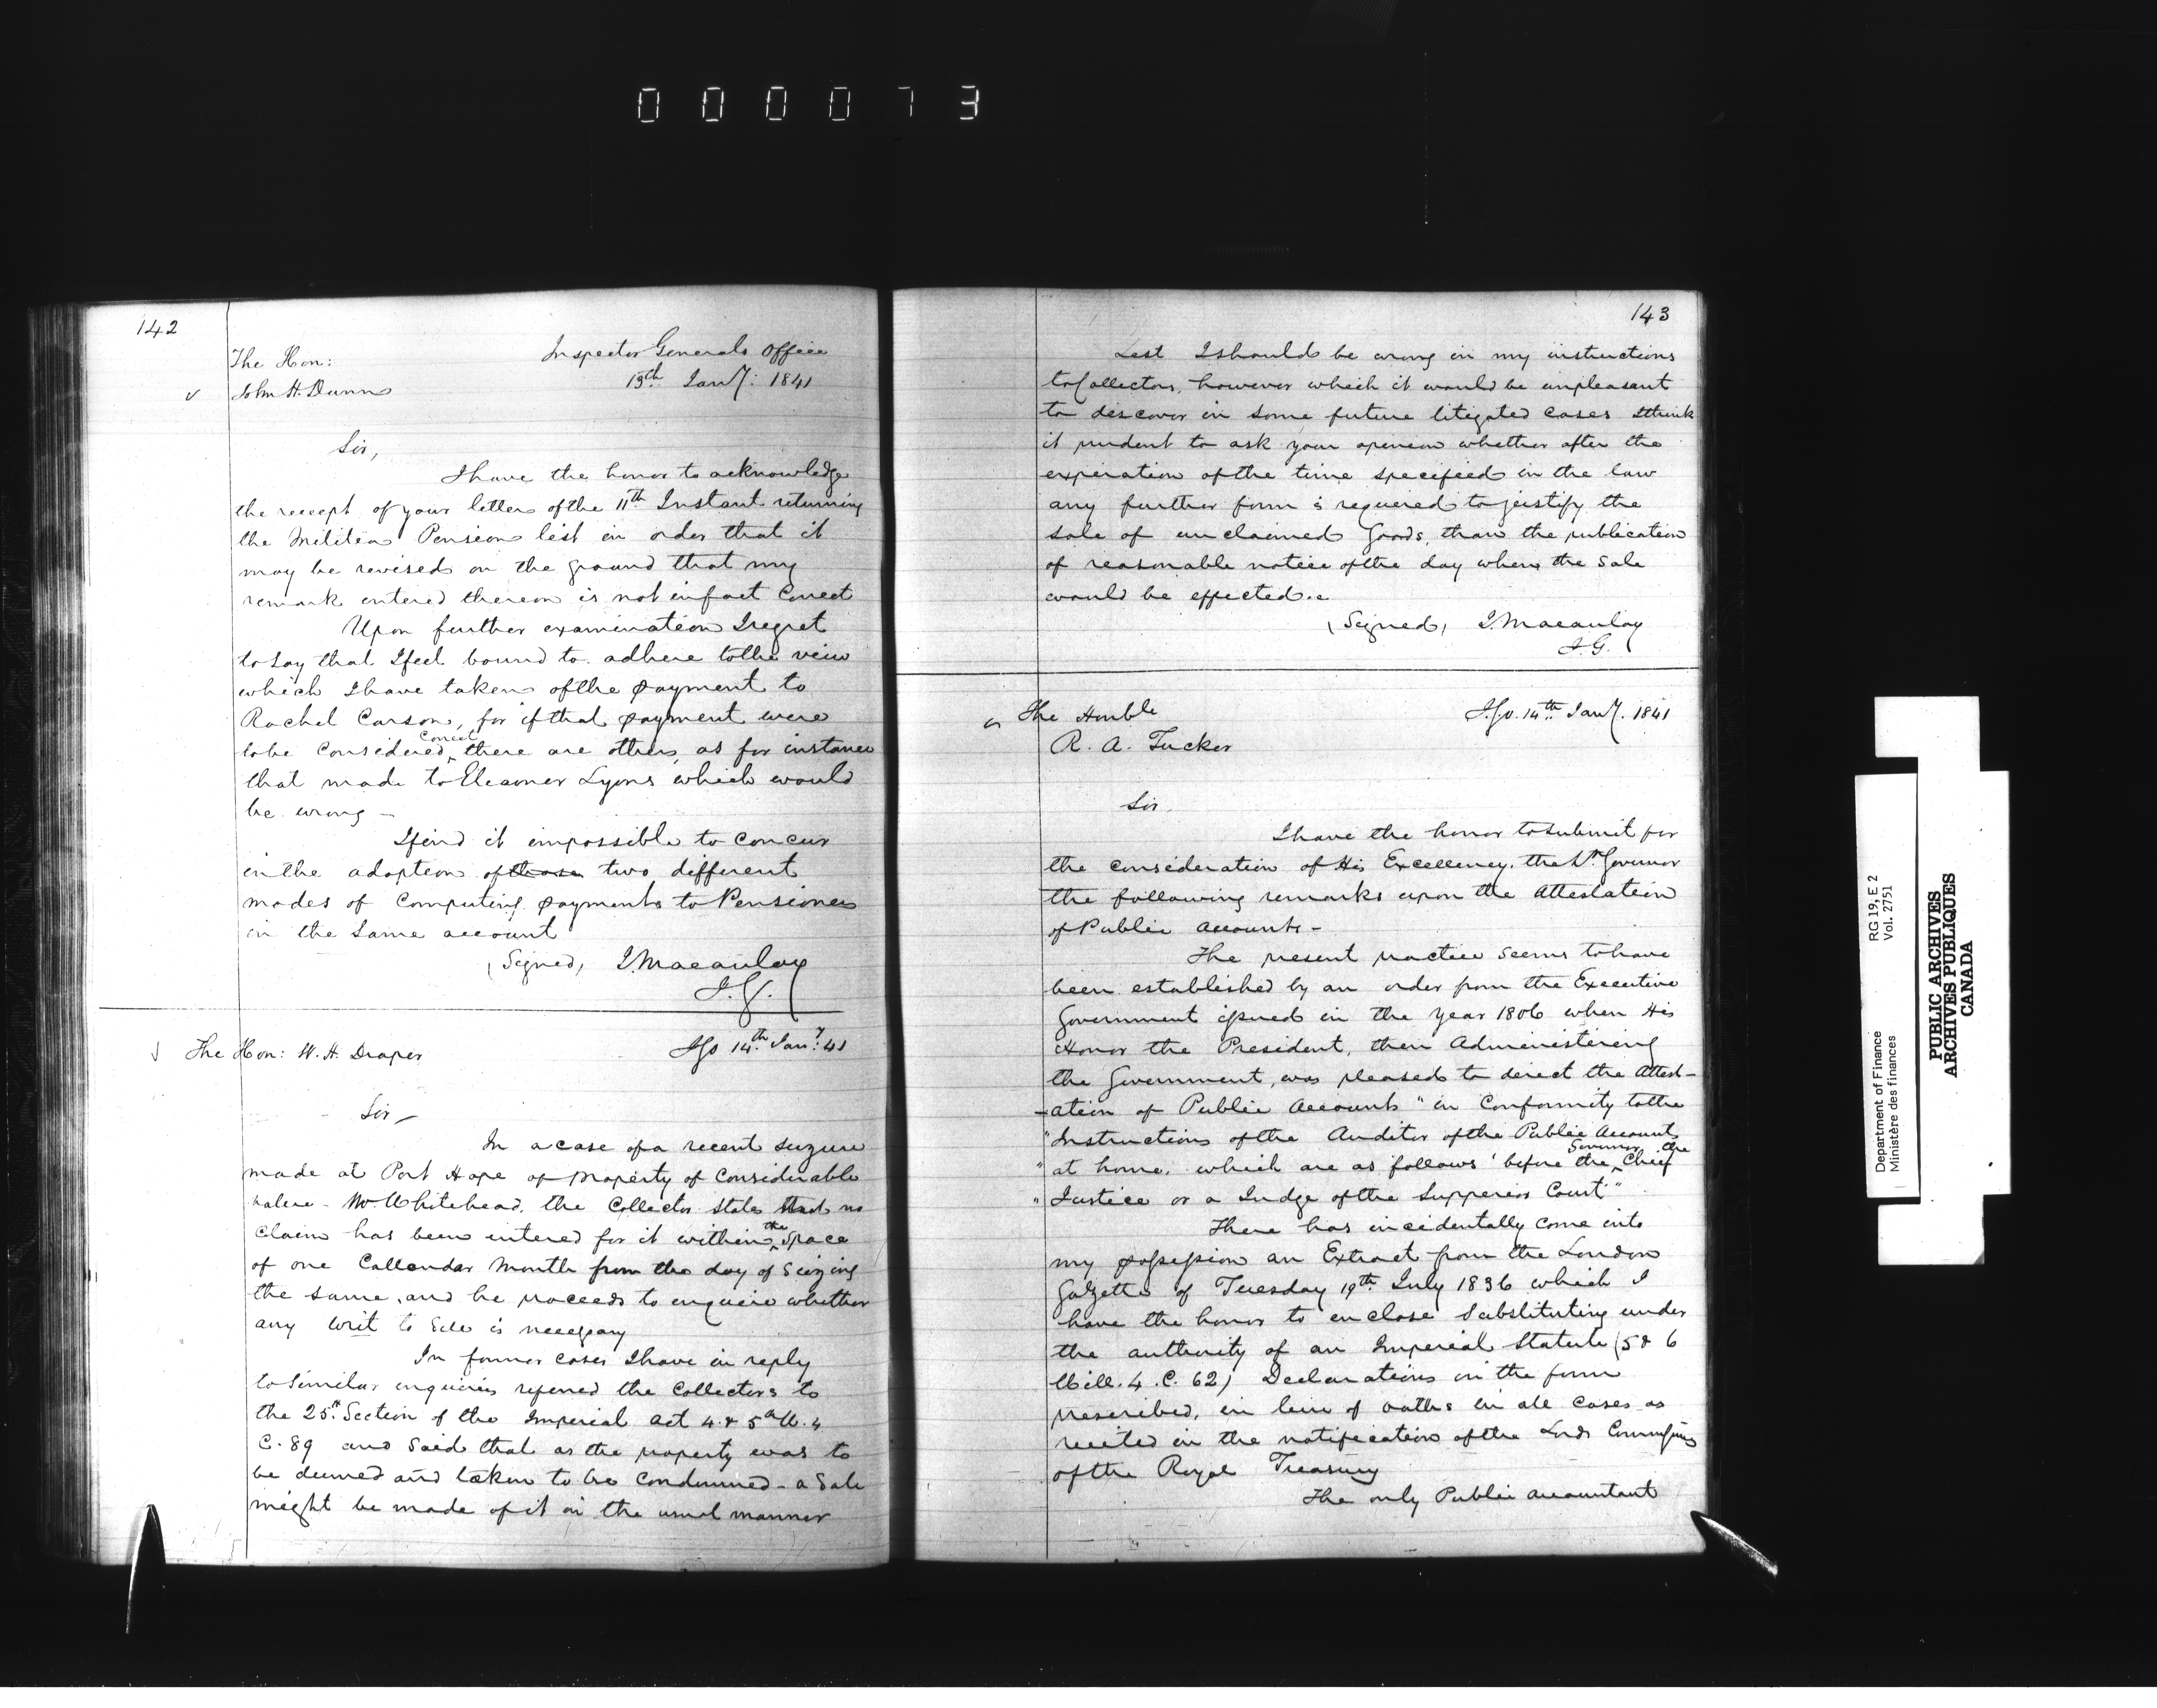 000073
142
The Hon:
John H. Dunn
Inspector Generals Office
13th Jany: 1841
Sir,
I have the honor to acknowledge
the receipt of your letter of the 11th Instant returning
the Militia Pension list in order that it
may be revised on the ground that my
remark entered thereon is not infact Correct
Upon further examination I regret
to say that I feel bound to adhere to the view
which I have taken of the payment to
Rachel Carson, for if that payment were
to be Considered Correct there are others, as for instance
that made to Eleanor Lyons which would
be wrong -
I find it impossible to Concur
in the adoption of those two different
modes of Computing payments to Pensioners
in the same account
(Signed) J. Macaulay
I.G.
The Hon: W. H. Draper
IGO 14th Jany: 41
Sir -
In a case of a recent seizure
made at Port Hope of property of Considerable
value - Mr Whitehead, the Collector states that no
Claim has been entered for it within the space
of one Callendar Month from the day of seizing
the same, and he proceeds to enquire whether
any Writ to sell is necessary
In former cases I have in reply
to similar enquiries referred the Collectors to
the 25th Section of the Imperial Act 4 & 5 W. 4
C. 89 and said that as the property was to
be deemed and taken to be Condemned - a Sale
might be made of it in the usual manner
143
Lest I should be wrong in my instructions
to Collectors, however which it would be unpleasant
to discover in some future litigated cases I think
it prudent to ask your opinion whether after the
expiration of the time specified in the law
any further form is required to justify the
sale of unclaimed Goods, than the publication
of reasonable notice of the day when the Sale
would be effected.
(Signed) J. Macaulay
I.G.
The Honble
R. A. Tucker
I.G.O. 14th Jany. 1841
Sir,
I have the honor to submit for
the consideration of His Excellency, the Lt. Governor
the following remarks upon the Attestation
of Public Accounts -
The present practice seems to have
been established by an order from the Executive
Government issued in the Year 1806 when His
Honor the President, then Administering
the Government, was pleased to direct the Attest-
-ation of Public Accounts "in Conformity to the
"Instructions of the Auditor of the Public Accounts
"at home, which are as follows 'before the Governor the Chief
"Justice or a Judge of the Supperior Court'"
There has incidentally come into
my possession an Extract from the London
Gazette of Tuesday 19th July 1836 which I
have the honor to enclose substituting under
the authority of an Imperial Statute (5 & 6
Will. 4. C. 62) Declarations in the form
prescribed, in lieu of oaths in all cases as
recited in the notification of the Lords Commissrs
of the Royal Treasury
The only Public accountant
RG 19, E 2
Vol. 2751
Department of Finance
Ministère des finances
PUBLIC ARCHIVES
ARCHIVES PUBLIQUES
CANADA